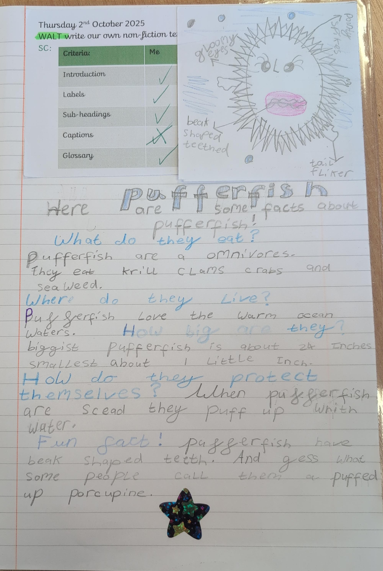 Thursday 2nd October 2025
WALT write our own non-fiction te
SC:
Criteria: Me
Introduction
Labels
Sub-headings
Captions
Glossary
beak
shaped
teethed
tail
fliker
Pufferfish
Here are some facts about
pufferfish!
What do they eat?
Pufferfish are a omnivores.
They eat krill clams crabs and
seaweed.
Where do they live?
Pufferfish love the warm ocean
waters. How big are they?
biggist pufferfish is about 24 inches
smallest about 1 little inch.
How do they protect
themselves? When pufferfish
are scead they puff up whith
water.
Fun fact! pufferfish have
beak shaped teeth. And gess what
some people call them a puffed
up porcupine.